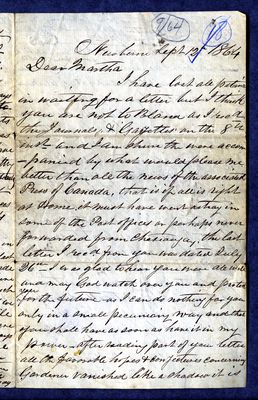 9/64
Newbern Sept 12th 1864
Dear Martha
I have lost all patience
in waiting for a letter but I think
you are not to Blame as I recd
the Journals & Gazettes on the 8th
inst and I am sure the were accom
-panied by what would please me
better than all the news of the associated
Press of Canada, that is if all is right
at Home, it must have went astray in
some of the Post offices or perhaps never
forwarded from Chateaugay, the last
letter I recd from you was dated July
26 - I was glad to hear you were all well
and may God watch over you and protect
for the future as I can do nothing for you
only in a small pecuniary way and that
of you shall have as soon as I have it in my
power - after reading part of your letter
all the favorable hopes & conjectures concerning
Gardiner vanished like a shadow it is